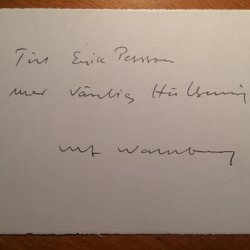 Till Erik Persson
med vänlig Hälsning
Ulf Wahlberg